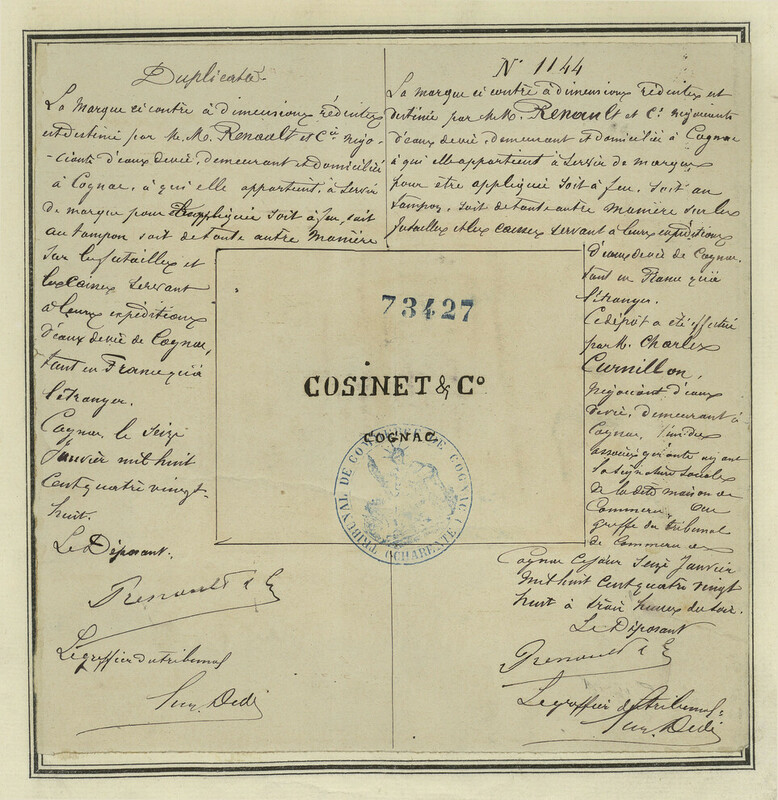 Duplicata.
La marque ci contre à dimensions réduites
est destinée par M.M. Renault et Cie négo-
ciants d'eaux de vie, demeurant et domiciliés
à Cognac, à qui elle appartient, à servir
de marque pour être appliquée soit à feu, soit
au tampon soit de toute autre manière
sur les futailles et
les caisses servant
à leurs expéditions
d'eaux de vie de Cognac,
tant en France qu'à
l'étranger.
Cognac le seize
Janvier mil huit
cent quatre vingt-
huit.
Le Déposant.
Renault & Co
Le greffier du tribunal
No 1144
La marque ci contre à dimensions réduites est
destinée par MM. Renault et Ce négociants
d'eaux de vie, demeurant et domiciliés à Cognac
à qui elle appartient à servir de marque
pour être appliquée soit à feu, soit au
tampon, soit de toute autre manière sur les
futailles et les caisses servant à leurs expéditions
d'eaux de vie de Cognac.
tant en France qu'à
l'étranger.
Ce dépôt a été effectué
par M. Charles
Curnillon,
négociant d'eaux
de vie, demeurant à
Cognac, l'un des
associés gérants ayant
la signature sociale
de la dite maison de
commerce au
greffe du tribunal
de commerce de
Cognac ce jour seize Janvier
mil huit cent quatre vingt
huit à trois heures du soir.
Le Déposant
Renault & Co
Le greffier du tribunal
73427
COSINET & Co
COGNAC
TRIBUNAL DE COMMERCE DE COGNAC
(CHARENTE)